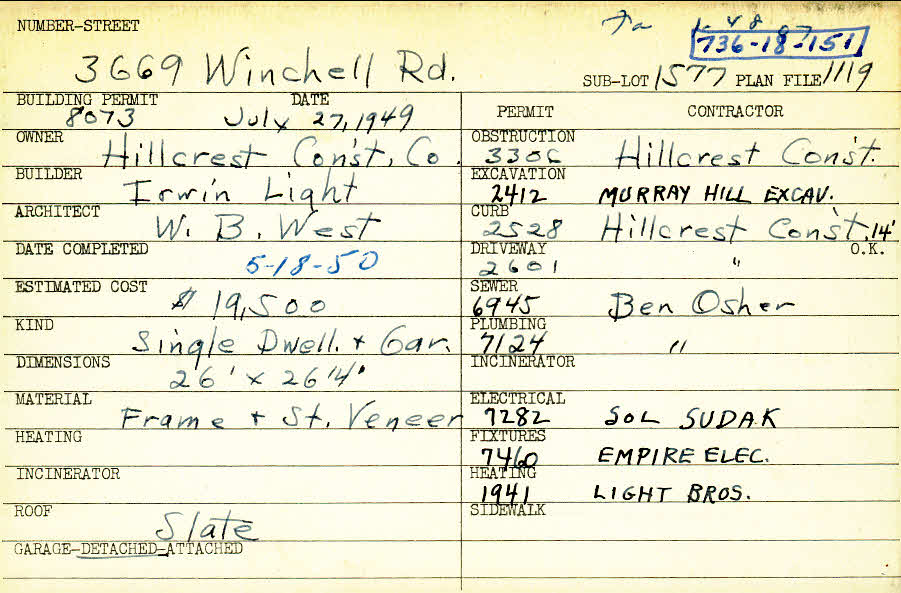 NUMBER-STREET
736-18-151
3669 Winchell Rd.
SUB-LOT 1577 PLAN FILE 1119
BUILDING PERMIT DATE
8073 July 27, 1949
OWNER Hillcrest Const. Co.
BUILDER Irwin Light
ARCHITECT W. B. West
DATE COMPLETED 5-18-50
ESTIMATED COST $ 19,500
KIND Single Dwell. + Gar.
DIMENSIONS 26' x 26'4"
MATERIAL Frame + St. Veneer
HEATING
INCINERATOR
ROOF Slate
GARAGE-DETACHED-ATTACHED
PERMIT CONTRACTOR
OBSTRUCTION
3306 Hillcrest Const.
EXCAVATION
2412 MURRAY HILL EXCAV.
CURB
2528 Hillcrest Const. 14'
DRIVEWAY O.K.
2601 "
SEWER
6945 Ben Osher
PLUMBING
7124 "
INCINERATOR
ELECTRICAL
7282 SOL SUDAK
FIXTURES
7460 EMPIRE ELEC.
HEATING
1941 LIGHT BROS.
SIDEWALK